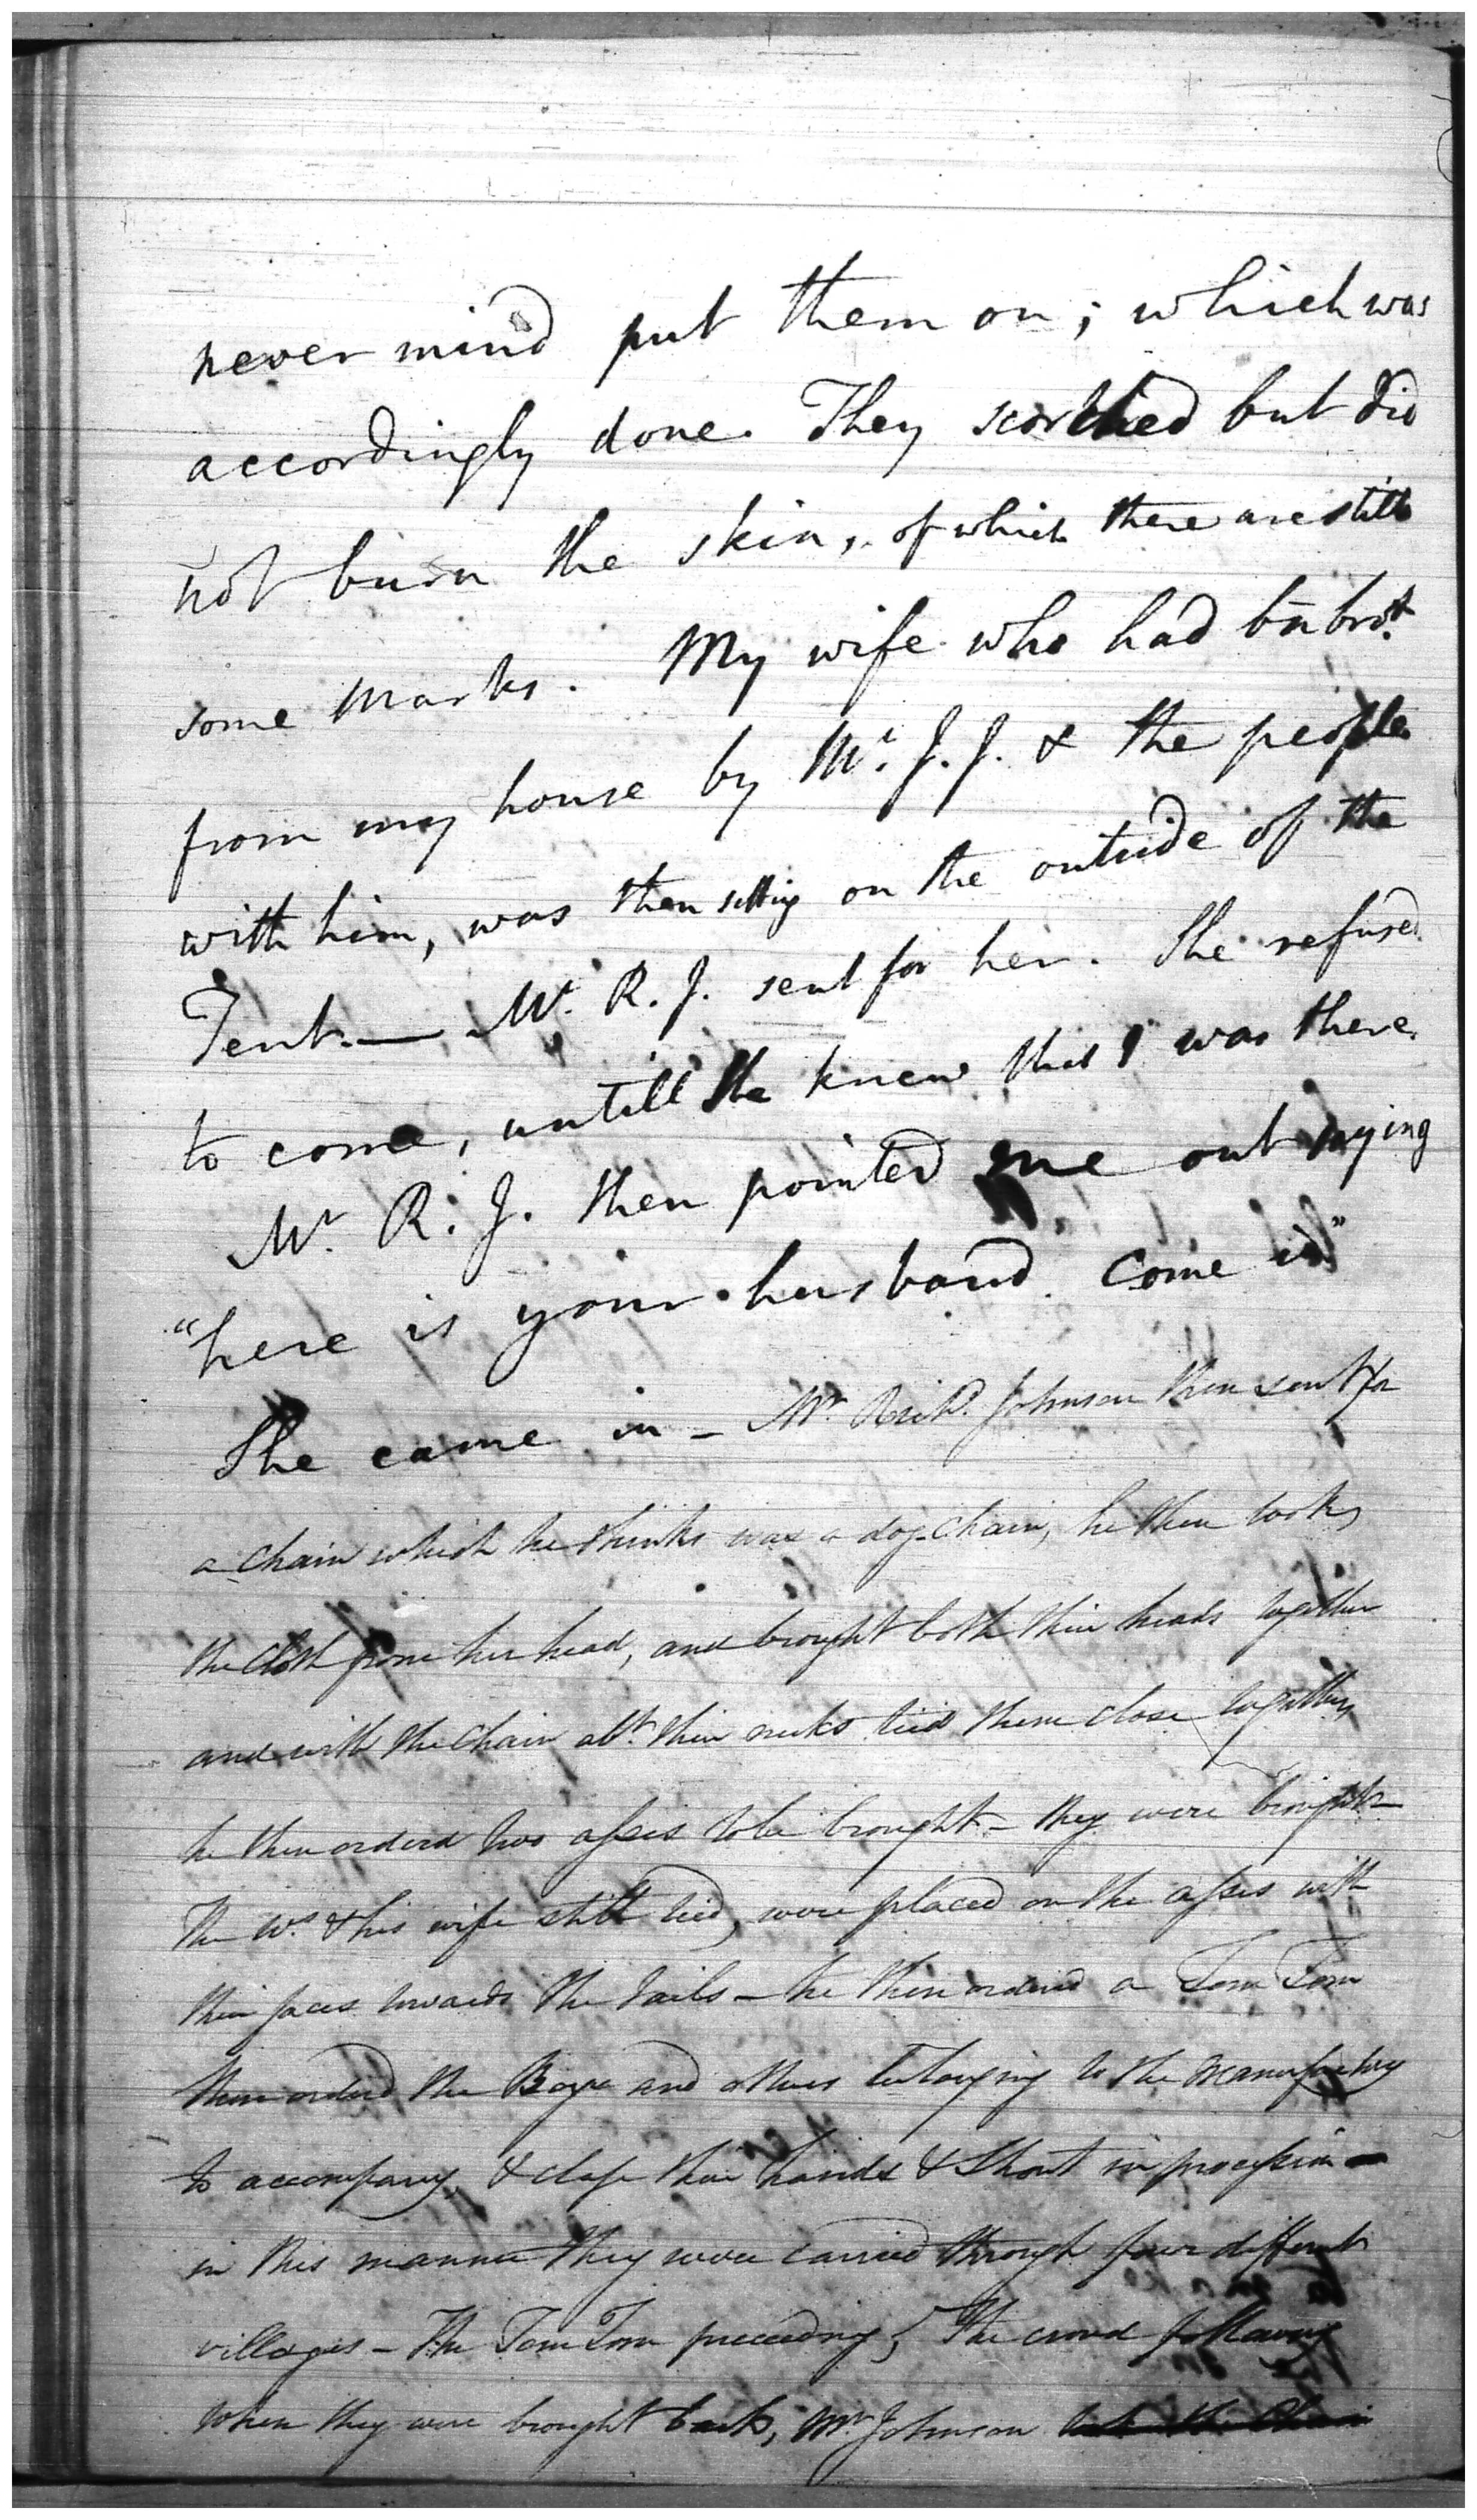 never mind put them on; which was
accordingly done. They scorched but did
not burn the skin, of which there are still
some marks. My wife who had bn brot
from my house by Mr. J. J. & the people
with him, was then sitting on the outside of the
Tent. — Mr. R. J. sent for her. She refused
to come, untill she knew that I was there.
Mr R. J. then pointed me out saying
"here is your husband. Come in"
She came in - Mr. Richd. Johnson then sent for
a chain which he thinks was a dog-chain, he then took
the cloth from her head, and brought both their heads together
and with the chain abt. their necks tied them close together
he then orderd two asses to be brought - they were brought -
The Ws. & his wife still tied, were placed on the asses with
their faces towards the tails - he then ordered a Tom Tom
then orderd the and others belonging to the Manufactory
to accompany, & clap their hands & Shout in procession -
in this manner they were carried through four different
villages - The Tom Tom preceeding, The crowd following
When they were brought back, Mr. Johnson took the Chain